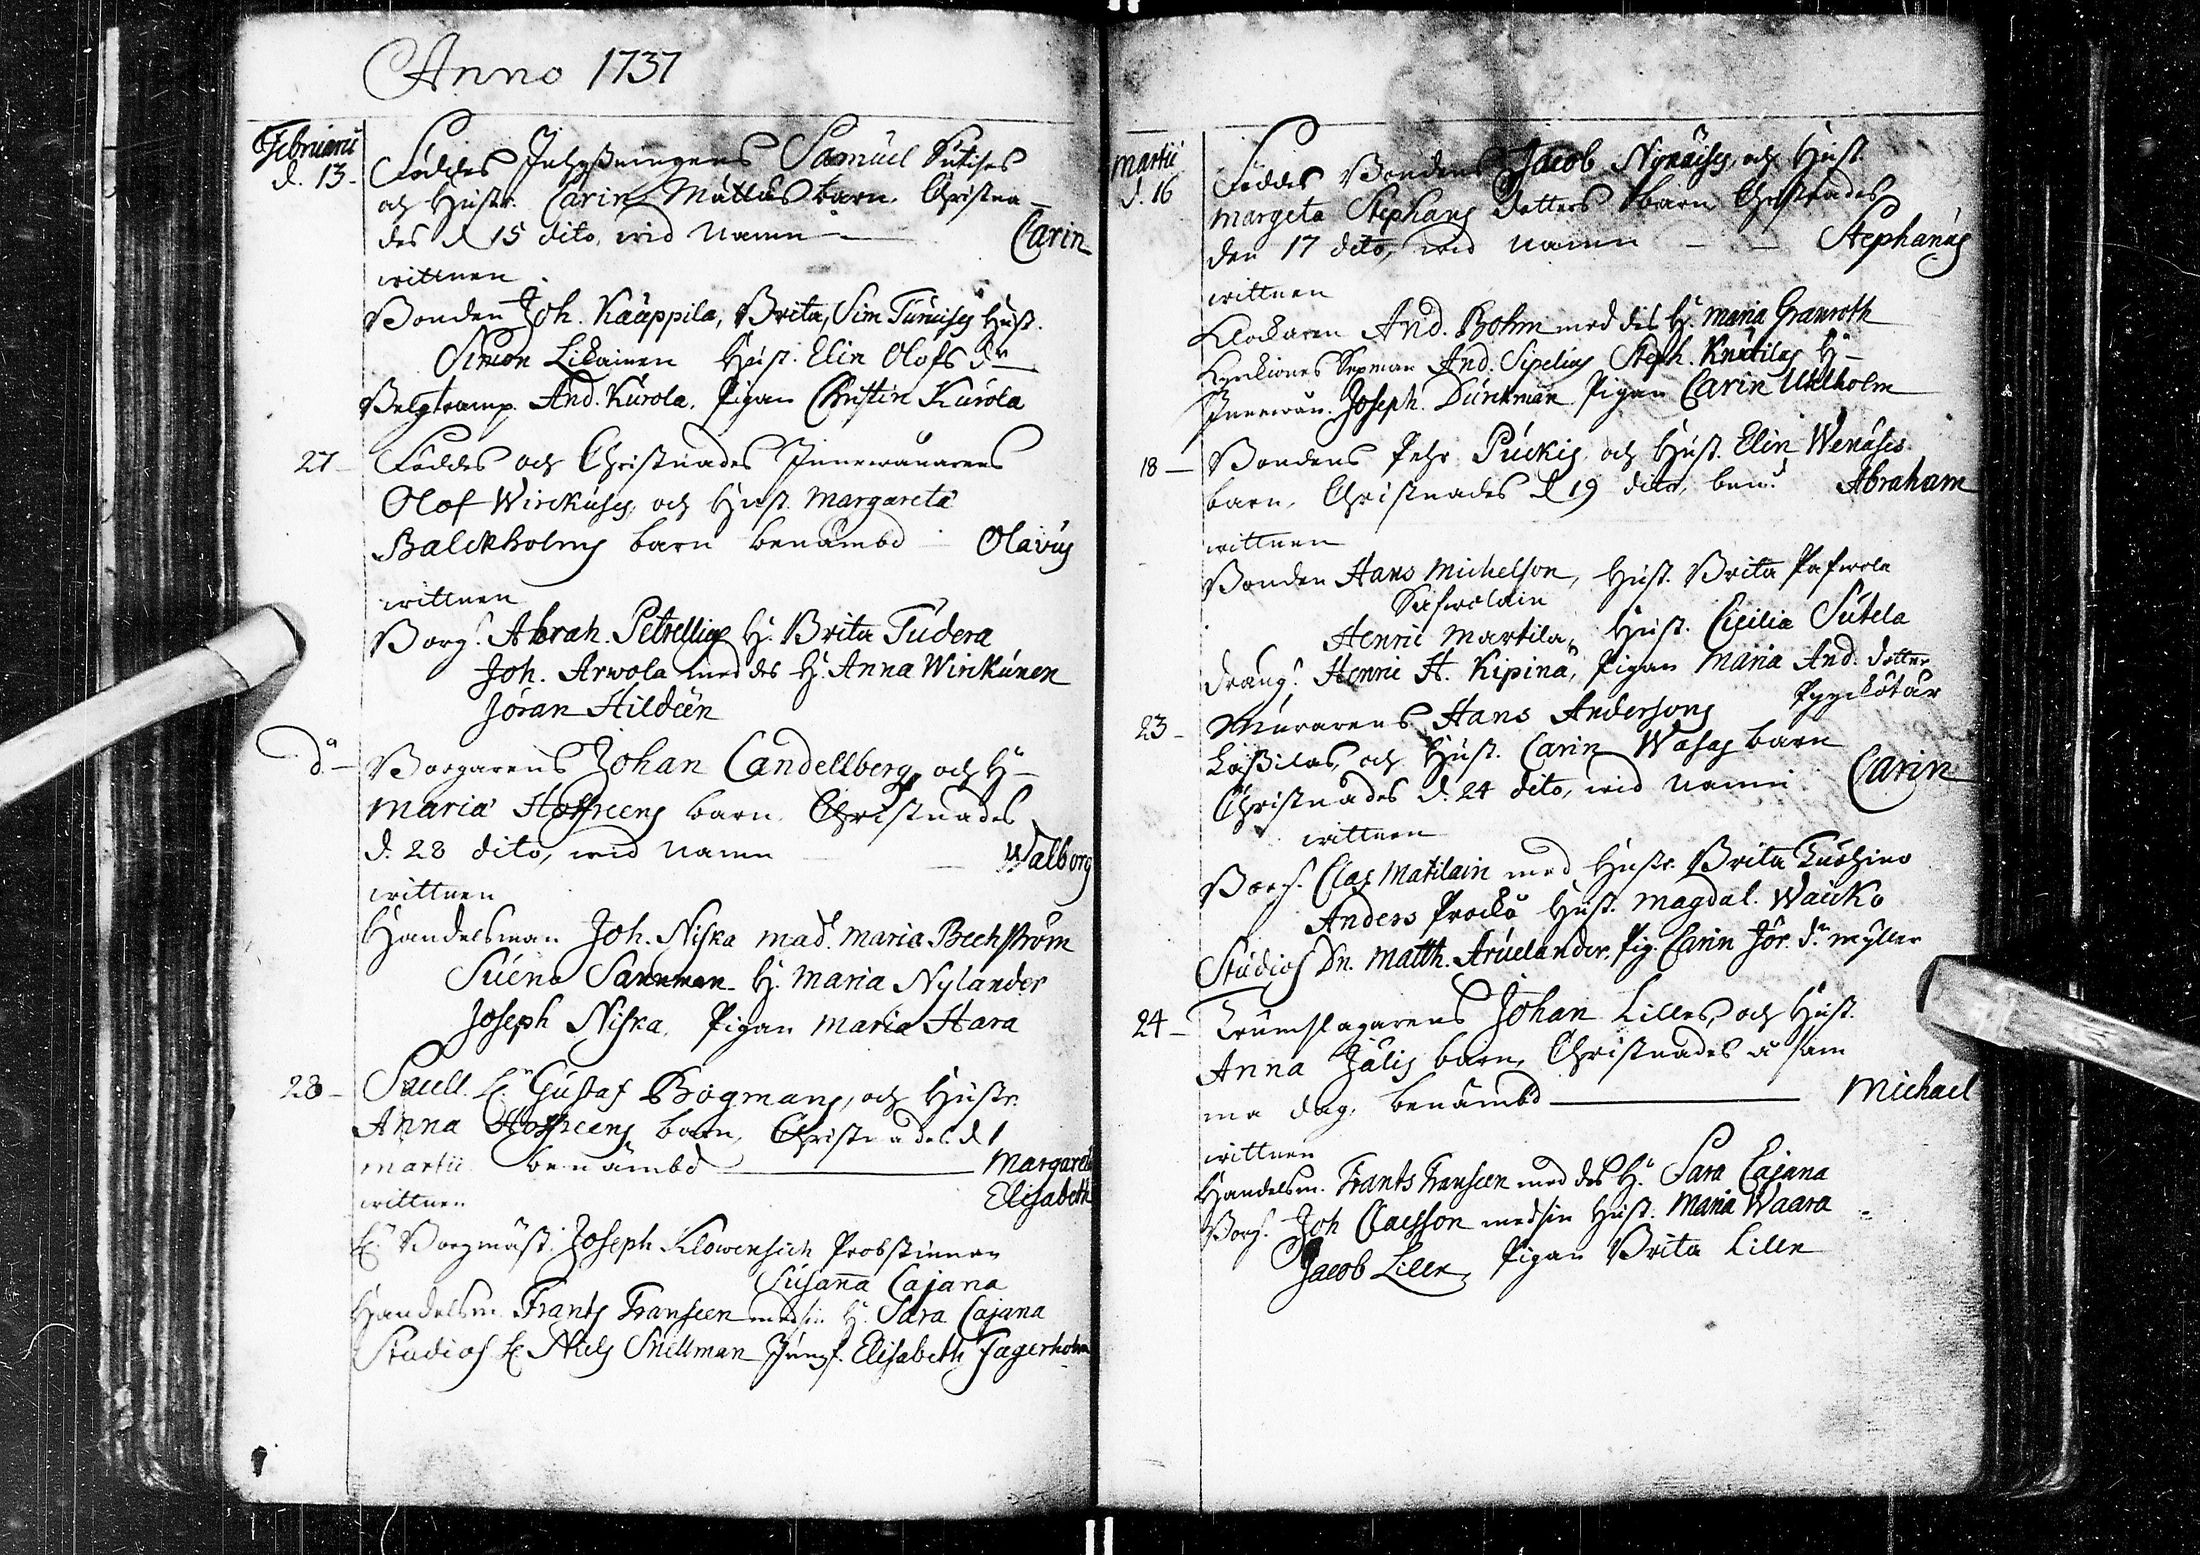 Anno 1737
Februarii
d. 13. Föddes Inhysningens Samuel Sutises
och Hustr. Carin Mattas barn. Christna-
des d 15 dito, wid namn — Carin
wittnen
Bonden Joh. Kaäppila, Brita, Sim Hust.
Simon Likainen Hust. Elin Olofs dr
And. Kurola. Pigan Christin Kurola
27 — Föddes och Christnades Innewånarens
Olof Wirckuses, och Hust. Margareta
Balckholms barn benämbd — Olavus
wittnen
Borg. Abrah. Petrellius H. Brita Tudera
Joh. Arwola med des H. Anna Wirikunen
Jöran Hildeen
do — Borgarens Johan Candellberg, och H—
Maria Hoffreens barn. Christnades
d. 28 dito, wid namn — Walborg
wittnen
Handelsman Joh. Niska mad. Maria Bechström
Sueno Sanman H. Maria Nylander
Joseph Niska, Pigan Maria Hara
28 — Sacell. H. Gustaf Bogmans, och Hustr.
Anna Hoffreens barn, Christnades d 1
martii benämbd — Margareta
wittnen Elisabeth
H. Borgmäst. Joseph Klowensich Probstinnan
Susanna Cajana
Handelsm. Frants Franseen med sin H. Sara Cajana
Studios H. Niels Snellman Jungf. Elisabeth Fagerholm
Martii
d. 16 Föddes Bondens Jacob och Hust.
Margeta Stephans dotters barn Christnades
den 17 dito, wid namn — — Stephanus
wittnen
Klockaren And. Bohm med des H. Maria Granroth
Kyrckiones Sexman And. Sipelius Steph. Knutilas H—
Innewån. Joseph. Durchman Pigan Carin Uhlholm
18 — Bondens Pehr Puckis, och Hust. Elin Wenäses
barn, Christnades d 19 dito, ben.d Abraham
wittnen
Bonden Hans Michelson, Hust. Brita Pafwola
Safwolain
Henric Martila, Hust. Cicilia Sutela
dräng. Henric H. Kipinä, Pigan Maria And. dotter
23 — Murarens Hans Andersons
Kåßilas, och Hust. Carin Wasas barn
Christnades d. 24 dito, wid namn Carin
wittnen
Borg. Clas Matilain med Hustr. Brita
Anders Hust. Magdal. Waicko
Studios Dn. Matth. Aruelander. Pig. Carin Jör. dr Myller
24 — Trumslagarens Johan Lilles, och Hust.
Anna Jälis barn, Christnades å sam
ma dag, benämbd — Michael
wittnen
Handelsm. Frants Franseen med des H. Sara Cajana
Borg. Joh Claesson med sin Hust. Maria Waara
Jacob Lille, Pigan Brita Lille